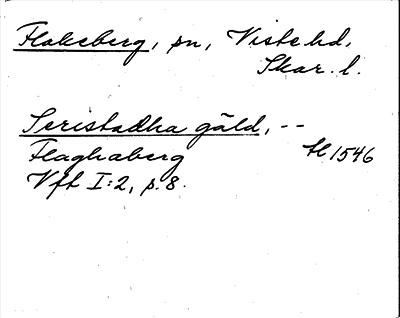 Flakeberg, sn, Viste hd,
Skar. l.
Seristadha gäld, --
Flaghaberg tl 1546
Vft I:2, p. 8.